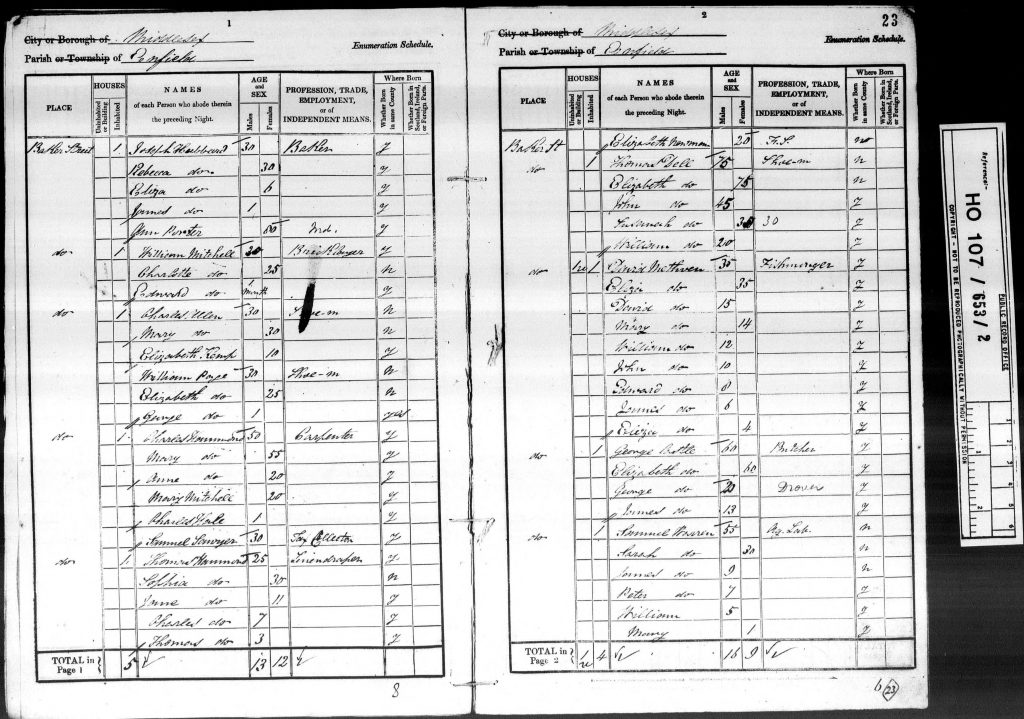 1
City or Borough of Middlesex
Parish or Township of Enfield
Enumeration Schedule.
PLACE
HOUSES
Uninhabited or Building
Inhabited
NAMES
of each Person who abode therein
the preceding Night.
AGE and SEX
Males
Females
PROFESSION, TRADE, EMPLOYMENT, or of INDEPENDENT MEANS.
Where Born
Whether Born in same County
Whether Born in Scotland, Ireland, or Foreign Parts.
Baker Street 1 Joseph Hubbard 30 Baker y
Rebecca do 30 y
Eliza do 6 y
James do 1 y
Ann Porter 80 Ind. y
do 1 William Mitchell 30 Bricklayer y
Charlotte do 25 n
Edward do 1 month y
do 1 Charles Allen 30 Shoe-m n
Mary do 30 n
Elizabeth Kemp 10 y
William Pope 30 Shoe-m n
Elizabeth do 25 n
George do 1 yes
do 1 Charles Hammond 50 Carpenter y
Mary do 55 y
Anne do 20 y
Mary Mitchell 20 y
Charles 1 y
Samuel Sawyer 30 Tax Collector y
do 1 Thomas Hammond 25 Linendraper y
Sophia do 30 n
Jane do 11 y
Charles do 7 y
Thomas do 3 y
TOTAL in Page 1 5 13 12
8
2
23
City or Borough of Middlesex
Parish or Township of Enfield
Enumeration Schedule.
PLACE
HOUSES
Uninhabited or Building
Inhabited
NAMES
of each Person who abode therein
the preceding Night.
AGE and SEX
Males
Females
PROFESSION, TRADE, EMPLOYMENT, or of INDEPENDENT MEANS.
Where Born
Whether Born in same County
Whether Born in Scotland, Ireland, or Foreign Parts.
Baker St Elizabeth Newman 20 F.S. n
do 1 Thomas Dell 75 Shoe-m n
Elizabeth do 75 n
John do 45 y
Susannah do 35 30 y
William do 20 y
do 1 David Methven 35 Fishmonger y
Eliza do 35 y
David do 15 y
Mary do 14 y
William do 12 y
John do 10 y
Edward do 8 y
James do 6 y
Eliza do 4 y
do 1 George 60 Butcher y
Elizabeth do 60 y
George do Drover y
James do 13 y
do 1 Samuel Warren 55 Ag. Lab. n
Sarah do 30 n
James do 9 n
Peter do 7 y
William 5 y
Mary 1 y
TOTAL in Page 2 4 16 9
6 (23)
Reference:-
HO 107 / 653 / 2
PUBLIC RECORD OFFICE
COPYRIGHT - NOT TO BE REPRODUCED PHOTOGRAPHICALLY WITHOUT PERMISSION
1 2 3 4 5 6